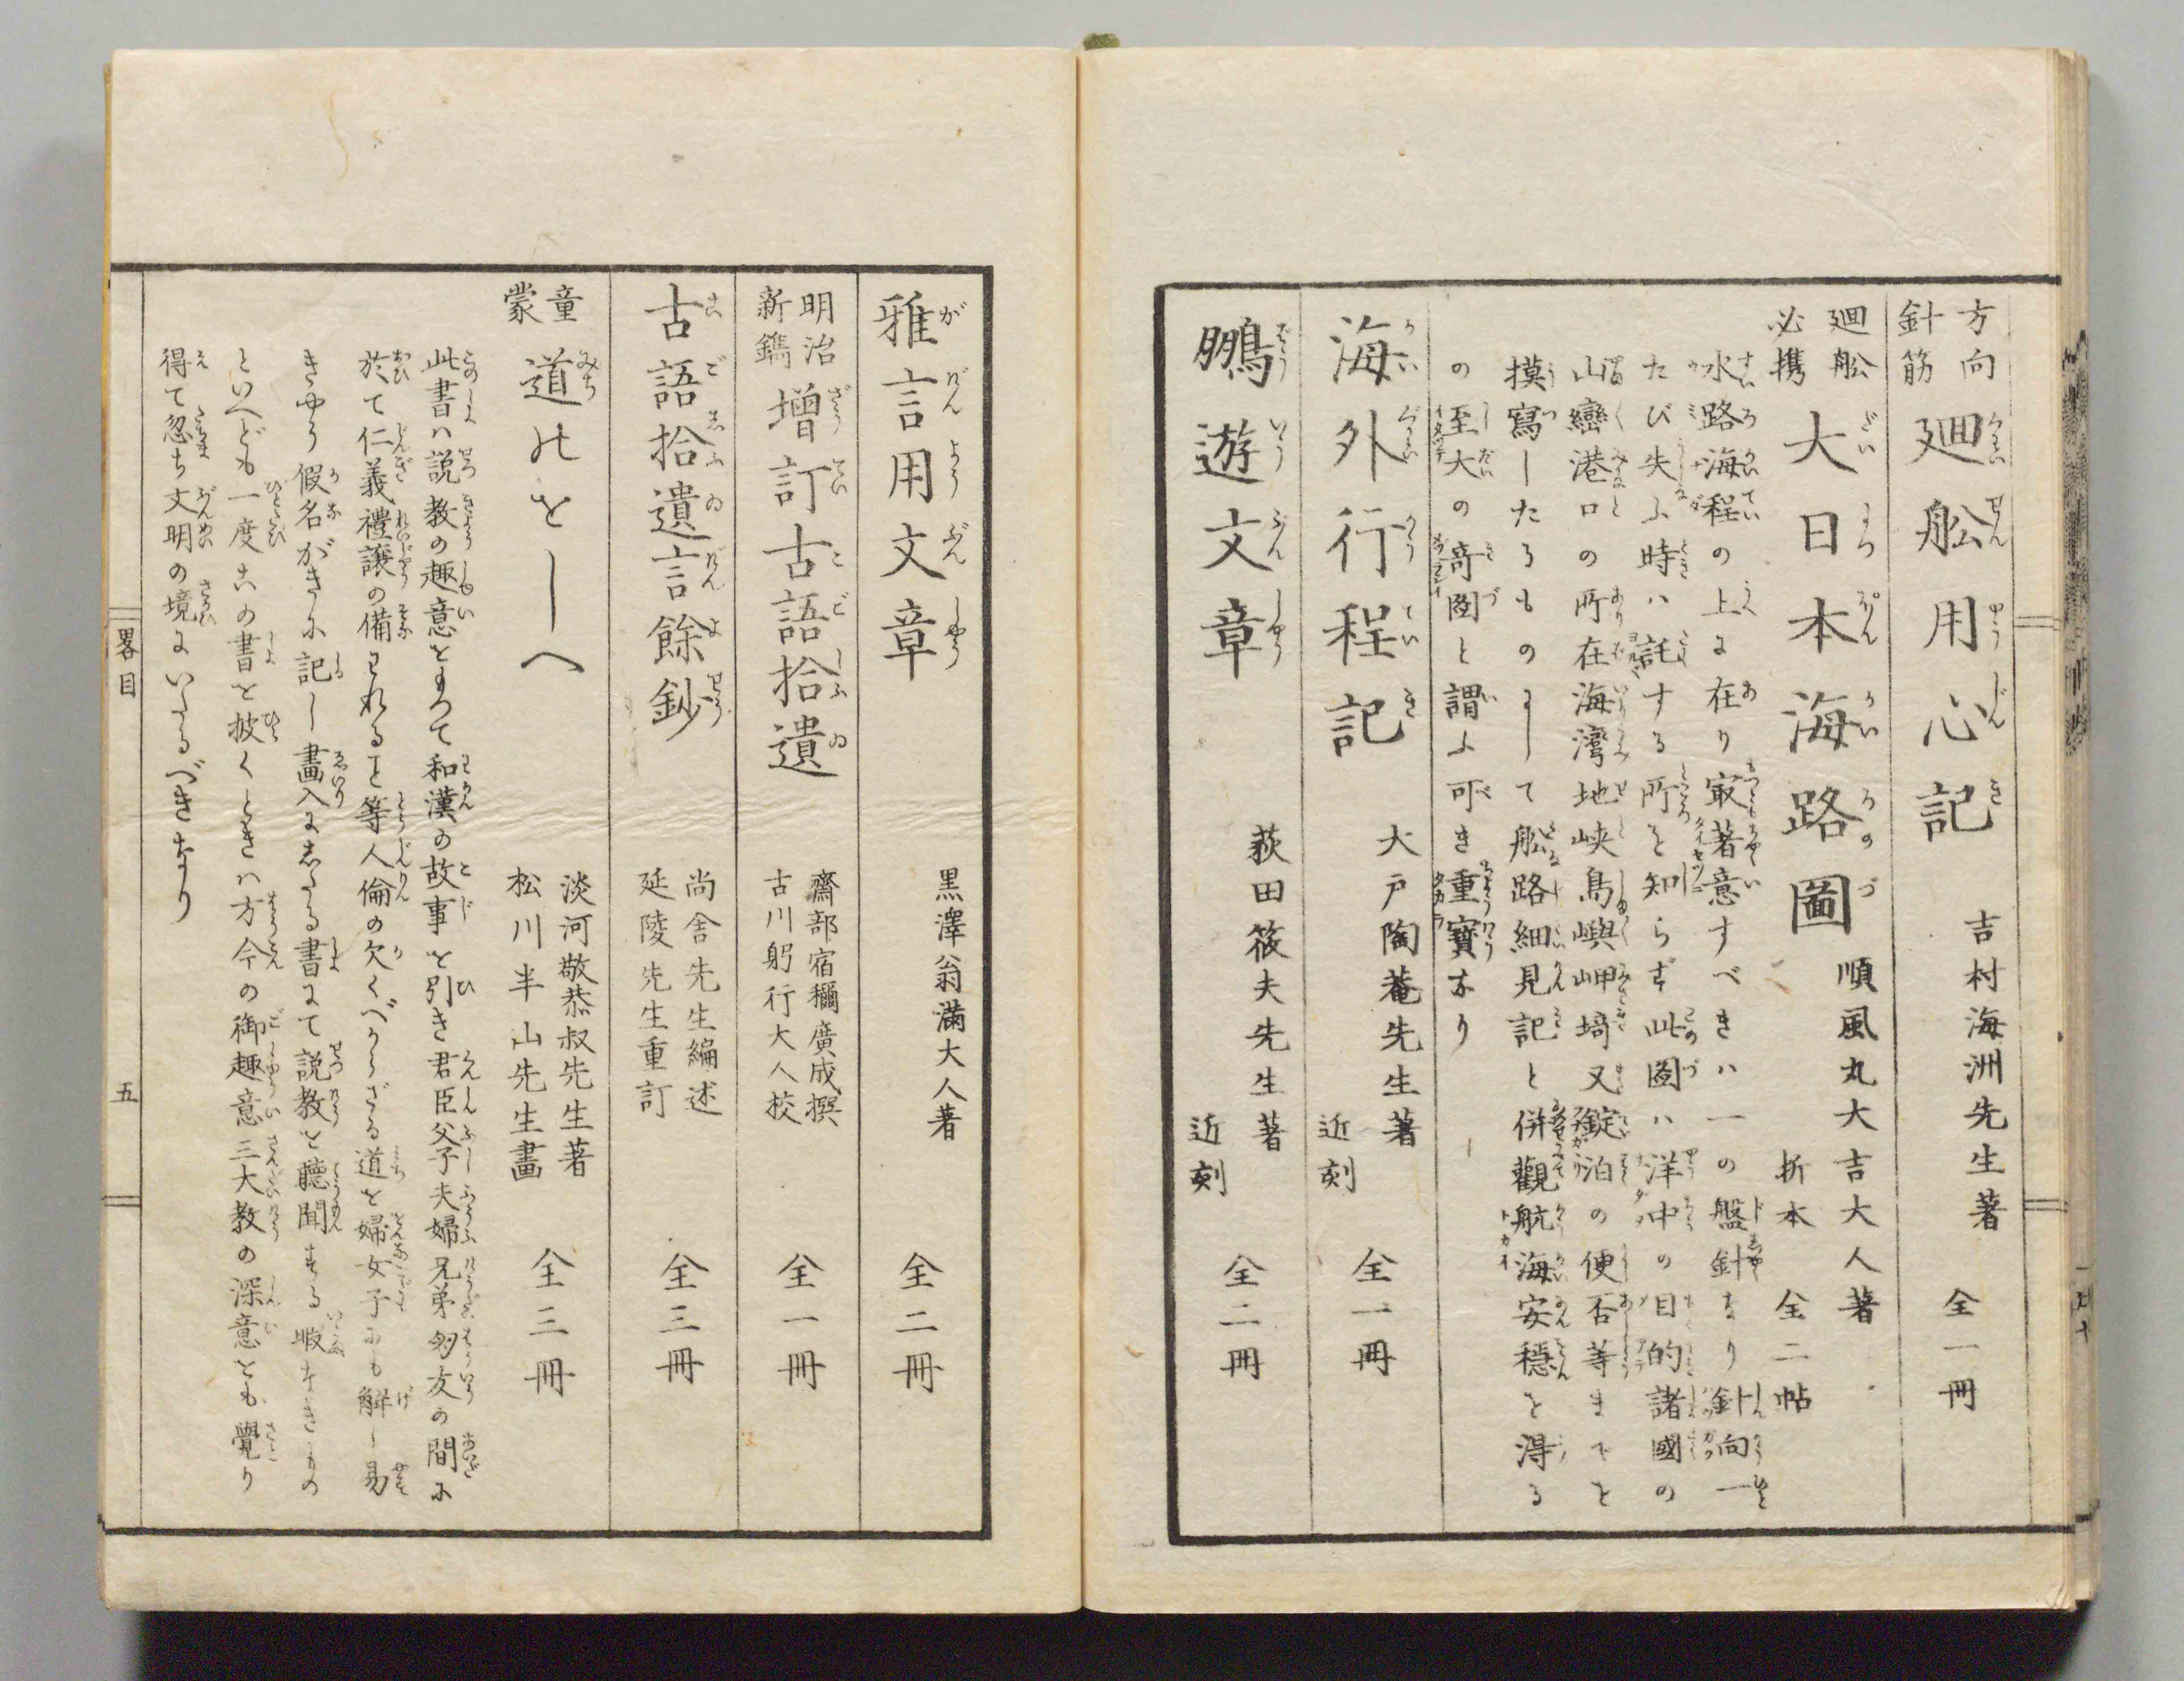 方向
針筋
廻舩用心記
吉村海洲先生著
全一冊
廻舩
必携
大日本海路圖
順風丸大吉大人著
折本 全二帖
水路海程の上に在り寂著意すべきハ一の盤針なり針向一
たび失ふ時ハ託する所を知らず此圖ハ洋中の目的諸國の
山巒港口の所在海湾地峡島嶼岬﨑又錠泊の便否等までを
摸寫したるものにして舩路細見記と併觀航海安穏を得る
の至大の竒圖と謂ふ可き重寳なり
海外行程記
大戸陶菴先生著
近刻
全一冊
鵬遊文章
荻田筱夫先生著
近刻
全二冊
雅言用文章
黒澤翁滿大人著
全二冊
明治
新鐫
增訂古語拾遺
齋部宿禰廣成撰
古川躬行大人校
全一冊
古語拾遺言餘鈔
尚舎先生編述
延陵先生重訂
全三冊
童
蒙
道のをしへ
淡河敬恭叔先生著
松川半山先生畫
全三冊
此書ハ説教の趣意をもつて和漢の故事を引き君臣父子夫婦兄弟朋友の間に
於て仁義禮譲の備はれると等人倫の欠くべからざる道を婦女子にも觧し易
きやう假名がきに記し畫入にしたる書にて説教を聽聞する暇なきもの
といへども一度この書を披くときハ方今の御趣意三大教の深意をも覺り
得て忽ち文明の境にいたるべきなり
畧目
五